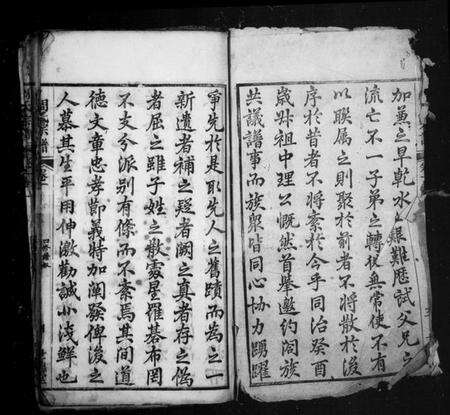 加兼之旱乾水溢艱難歷試父兄之
流亡不一子弟之轉徙無常使不有
以聯属之則聚於前者不將散於後
序於昔者不將紊於今乎同治癸酉
歲姝祖中理公慨然首舉邀約阖族
共議譜事而族衆皆同心協力踴躍
争先於是取先人之舊蹟而為之一
新遺者補之疑者闕之真者存之僞
者屈之雖子姓之散處星羅碁布罔
不支分派别有條而不紊焉其間道
德文章忠孝節義特加闡發俾後之
人慕其生平用伸激勸誠小淺鮮也
宗譜